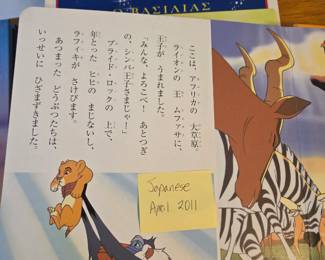 ΒΑΣΙΛΙΑΣ
ここは、アフリカの 大草原。
ライオンの 王 ムファサに、
王子が うまれました。
「みんな、よろこべ！ あとつぎ
の、シンバ王子さまじゃ！」
プライド・ロックの 上で、
年とった ヒヒの まじないし、
ラフィキが さけびます。
あつまった どうぶつたちは、
いっせいに ひざまずきました。
Japanese
April 2011